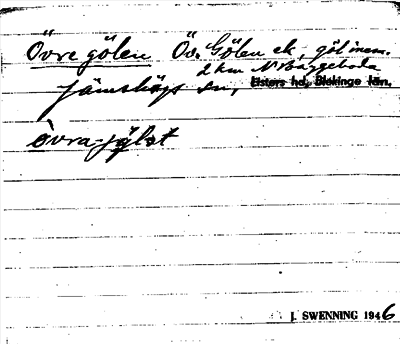 Övre gölen Öv. Gölen ek, göl inom.
2 km N Baggeboda
Jämshögs sn, Listers hd, Blekinge län.
övra-jylæt
J. SWENNING 1946